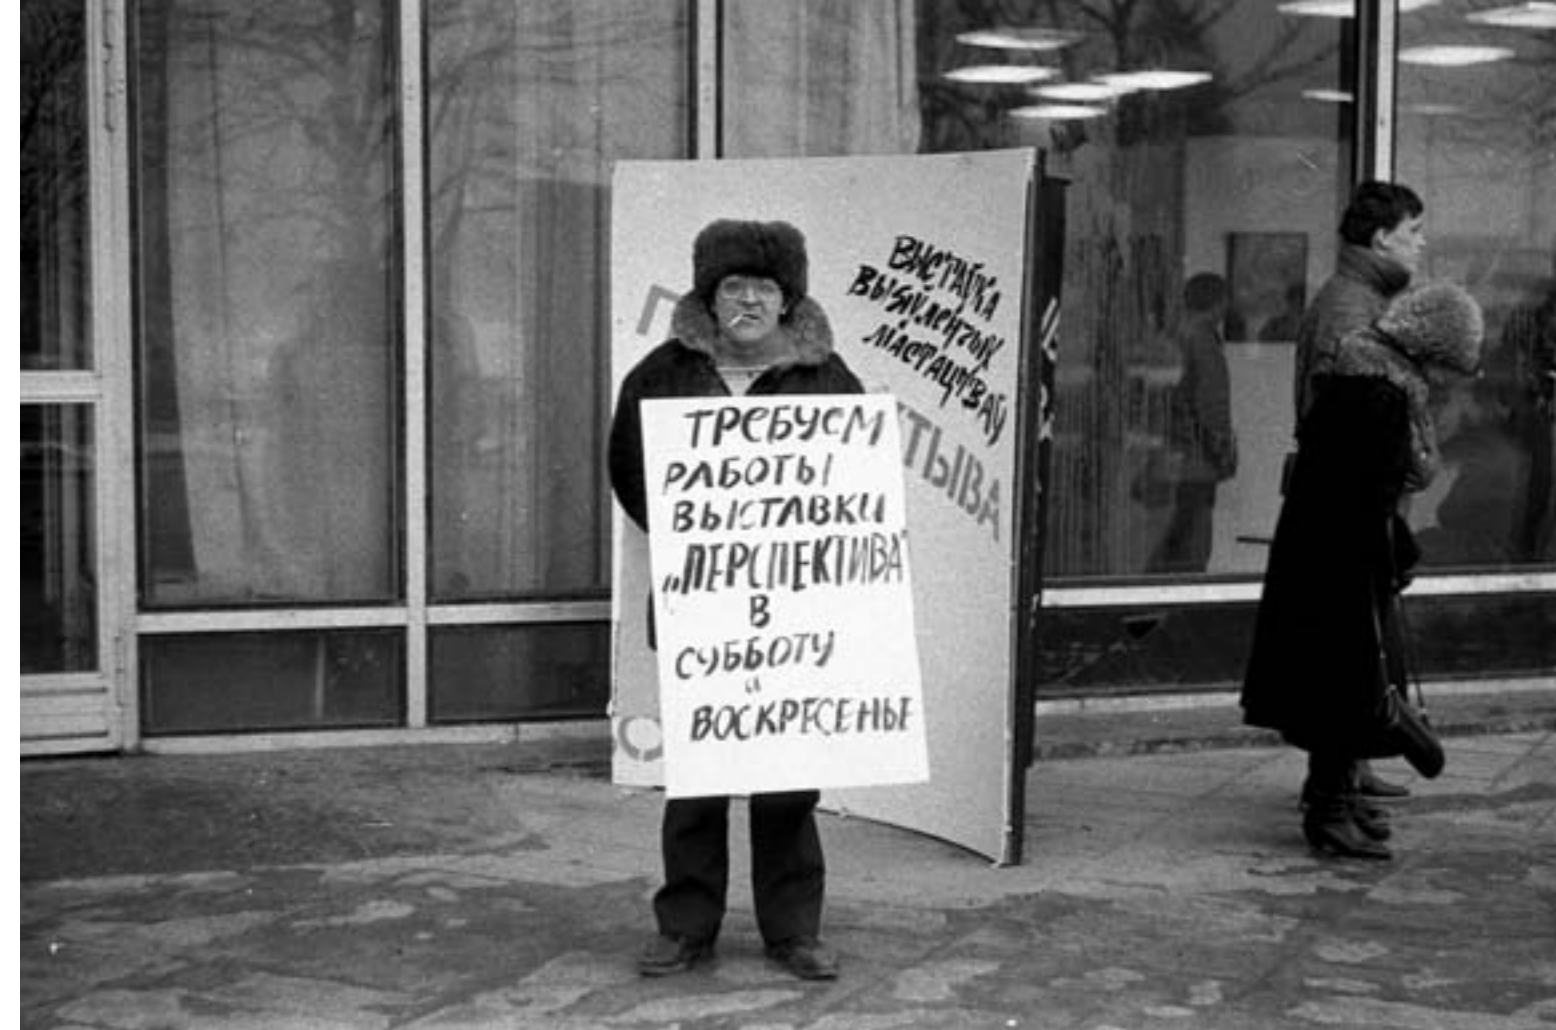 ВЫСТАЎКА
ВЫЯЎЛЕНЧЫХ
МАСТАЦТВАЎ
П
КТЫВА
ТРЕБУЕМ
РАБОТЫ
ВЫСТАВКИ
„ПЕРСПЕКТИВА"
В
СУББОТУ
и
ВОСКРЕСЕНЬЕ